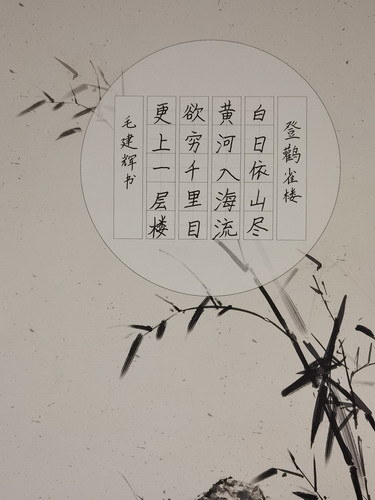 登鹳雀楼
白日依山尽
黄河入海流
欲穷千里目
更上一层楼
毛建辉书